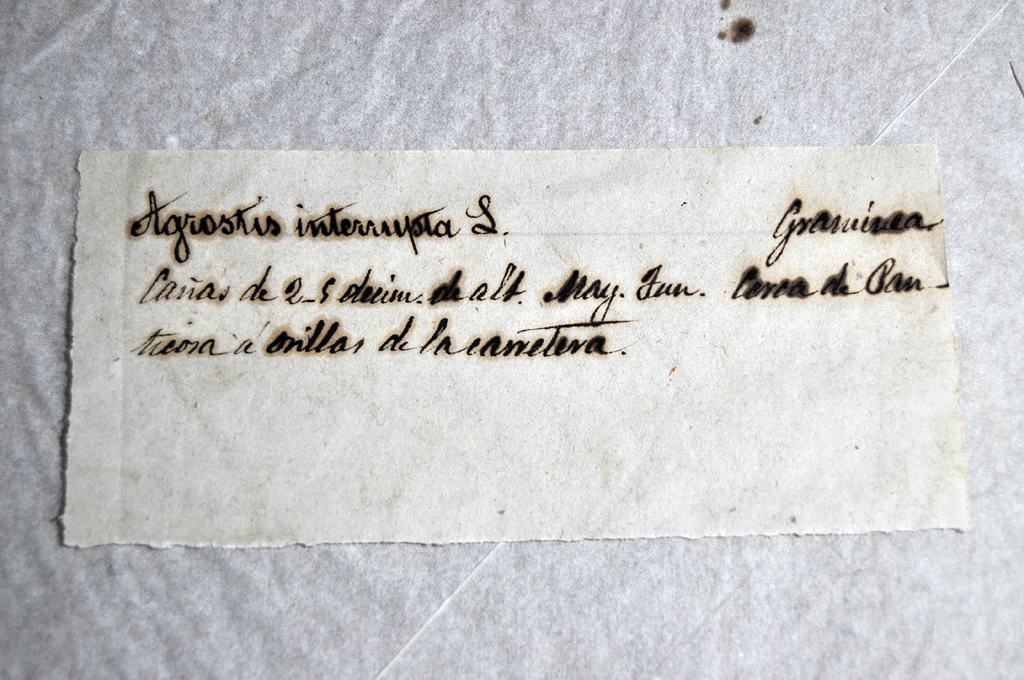 Agrostis interrupta L. Gramínea.
Cañas de 2-5 decim. de alt. May. Jun. Cerca de Pan-
ticosa á orillas de la carretera.